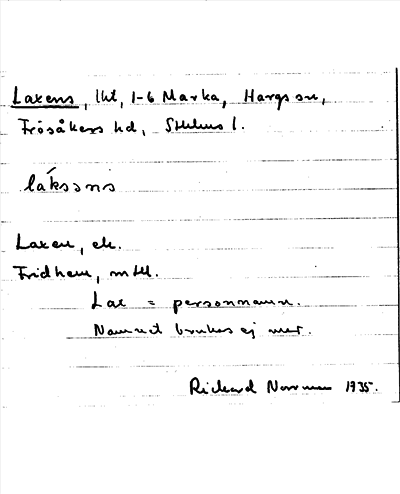 Laxens, lht, 1-6 Marka, Hargs sn,
Frösåkers hd, Sthlms l.
lákssns
Laxen, ek.
Fridhem, mtl.
Lax = personnamn.
Namnet brukas ej mer.
Richard Norrman 1935.